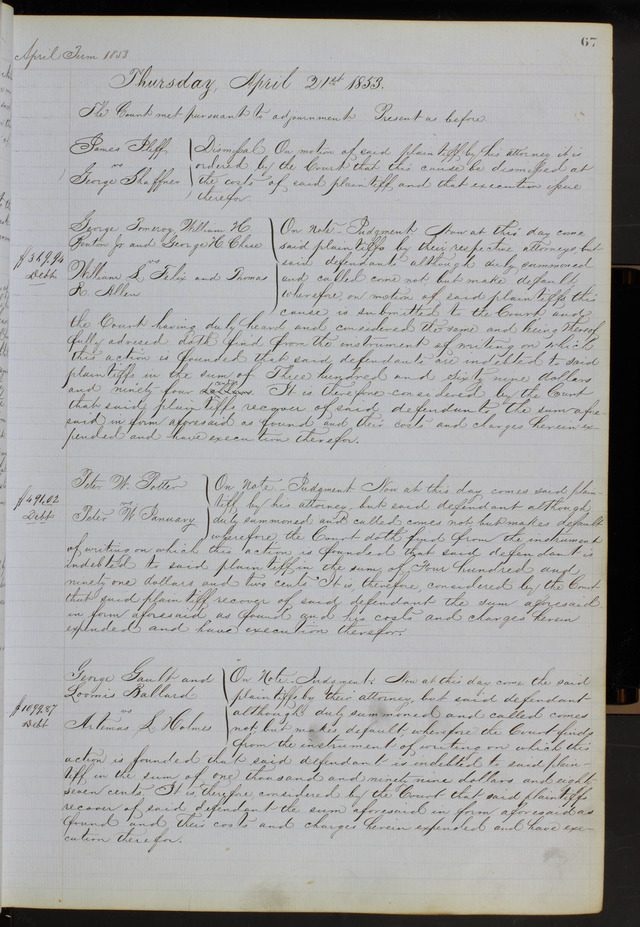 67
April Term 1853
Thursday, April 21st 1853.
The Court met pursuant to adjournment Present as before
James
vs
George Shaffner
Dismissal On motion of said plaintiff by his attorney it is
ordered by the Court that this cause be dismissed at
the costs of said plaintiff and that execution issue
therefor
$369,94
Debt
George Pomeroy, William H.
Jr and George H. Chase
vs
William L. Felix and Thomas
R. Allen
On Note - Judgment Now at this day come
said plaintiffs by their respective attorneys, but
said defendants although duly summoned
and called come not but make default
wherefore on motion of said plaintiffs this
cause is submitted to the Court and
the Court having duly heard and considered the same and being thereof
fully advised doth find from the instrument of writing on which
this action is founded that said defendants are indebted to said
plaintiffs in the sum of Three hundred and sixty nine dollars
and ninety four cents. It is therefore considered by the Court
that said plaintiffs recover of said defendants the sum afore-
said in form aforesaid as found and their costs and charges herein ex-
pended and have execution therefor.
$491,02
Debt
Peter W. Potter
vs
Peter W January
On Note - Judgment Now at this day comes said plain-
tiff by his attorney, but said defendant although
duly summoned and called comes not but makes default
wherefore, the Court doth find from the instrument
of writing on which this action is founded that said defendant is
indebted to said plaintiff in the sum of Four hundred and
ninety one dollars and two cents It is, therefore, considered by the Court
that said plaintiff recover of said defendant the sum aforesaid
in form aforesaid as found and his costs and charges herein
expended and have execution therefor.
$1099,87
Debt
George Gault and
Loomis Ballard
vs
Artemas L Holmes
On Note - Judgment. Now at this day come the said
plaintiffs by their attorney, but said defendant
although duly summoned and called comes
not but makes default, wherefore the Court finds
from the instrument of writing on which this
action is founded that said defendant is indebted to said plain-
tiff in the sum of one thousand and ninety nine dollars and eighty
seven cents It is therefore considered by the Court that said plaintiffs
recover of said defendant the sum aforesaid in form aforesaid as
found and their costs and charges herein expended and have exe-
cution therefor.